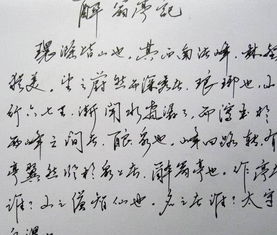 醉翁亭记
环滁皆山也。其西南诸峰，林壑
尤美，望之蔚然而深秀者，琅琊也。山
行六七里，渐闻水声潺潺，而泻出于
两峰之间者，酿泉也。峰回路转，有
亭翼然临于泉上者，醉翁亭也。作亭者
谁？山之僧智仙也。名之者谁？太守
自谓